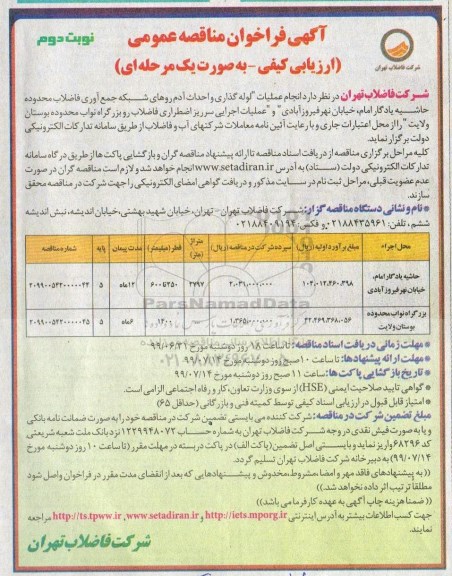 آگهی فراخوان مناقصه عمومی
نوبت دوم
(ارزیابی کیفی - به صورت یک مرحله ای)
شرکت فاضلاب تهران
شرکت فاضلاب تهران در نظر دارد انجام عملیات "لوله گذاری و احداث آدم روهای شبکه جمع آوری فاضلاب محدوده
حاشیه یادگار امام، خیابان نهر فیروزآبادی" و "عملیات اجرایی سرریز اضطراری فاضلاب رو بزرگراه نواب محدوده بوستان
ولایت" را از محل اعتبارات جاری و با رعایت آئین نامه معاملات شرکتهای آب و فاضلاب از طریق سامانه تدارکات الکترونیکی
دولت برگزار نماید.
کلیه مراحل برگزاری مناقصه از دریافت اسناد مناقصه تا ارائه پیشنهاد مناقصه گران و بازگشایی پاکت ها از طریق درگاه سامانه
تدارکات الکترونیکی دولت (ستاد) به آدرس www.setadiran.ir انجام خواهد شد و لازم است مناقصه گران در صورت
عدم عضویت قبلی، مراحل ثبت نام در سایت مذکور و دریافت گواهی امضای الکترونیکی را جهت شرکت در مناقصه محقق
سازند.
*نام و نشانی دستگاه مناقصه گزار: شرکت فاضلاب تهران - تهران، خیابان شهید بهشتی، خیابان اندیشه، نبش اندیشه
ششم، تلفن: ۰۲۱۸۸۴۳۵۹۶۱ و فکس: ۰۲۱۸۸۴۰۹۱۹۲
محل اجراء | مبلغ برآورد اولیه (ریال) | سپرده شرکت در مناقصه (ریال) | متراژ (متر) | قطر (میلیمتر) | مدت پیمان | پایه | شماره مناقصه
حاشیه یادگار امام، خیابان نهر فیروز آبادی | ۱۰۲،۰۱۲،۴۶۰،۳۹۸ | ۲،۰۳۱،۰۰۰،۰۰۰ | ۲۷۹۷ | ۲۵۰ تا ۶۰۰ | ۱۲ ماه | ۵ | ۲۰۹۹۰۰۵۲۲۰۰۰۰۰۴۴
بزرگراه نواب محدوده بوستان ولایت | ۴۲،۲۶۹،۳۶۸،۰۵۶ | ۱،۳۶۵،۰۰۰،۰۰۰ | ۱۴۰۰ | ۶ ماه | ۵ | ۲۰۹۹۰۰۵۲۲۰۰۰۰۰۴۵
ParsNamadData
*مهلت زمانی دریافت اسناد مناقصه: تا ساعت ۱۸ روز دوشنبه مورخ ۹۹/۰۶/۳۱
*مهلت ارائه پیشنهادها: تا ساعت ۱۰ صبح روز دوشنبه مورخ ۹۹/۰۷/۱۴
*تاریخ بازگشایی پاکت ها: ساعت ۱۱ صبح روز دوشنبه مورخ ۹۹/۰۷/۱۴
*گواهی تایید صلاحیت ایمنی (HSE) از سوی وزارت تعاون، کار و رفاه اجتماعی الزامی است.
*امتیاز قابل قبول در ارزیابی اسناد کیفی توسط کمیته فنی و بازرگانی (حداقل ۶۵)
مبلغ تضمین شرکت در مناقصه: شرکت کننده می بایستی تضمین شرکت در مناقصه خود را به صورت ضمانت نامه بانکی
و یا به صورت فیش نقدی در وجه شرکت فاضلاب تهران به شماره حساب ۱۲۲۹۹۴۸۰۷۲ نزد بانک ملت شعبه شریعتی
کد ۶۸۲۹۶ واریز نماید و بایستی اصل تضمین (پاکت الف) در پاکت دربسته در مهلت مقرر (تا ساعت ۱۰ روز دوشنبه مورخ
۹۹/۰۷/۱۴) به دبیرخانه شرکت فاضلاب تهران تسلیم گردد.
((به پیشنهادهای فاقد مهر و امضاء، مشروط، مخدوش و پیشنهادهایی که بعد از انقضای مدت مقرر در فراخوان واصل شود
مطلقا ترتیب اثر داده نخواهد شد.))
((ضمنا هزینه چاپ آگهی به عهده کارفرما می باشد))
جهت کسب اطلاعات بیشتر به آدرس اینترنتی http://iets.mporg.ir و www.setadiran.ir , http://ts.tpww.ir مراجعه
نمایند.
شرکت فاضلاب تهران